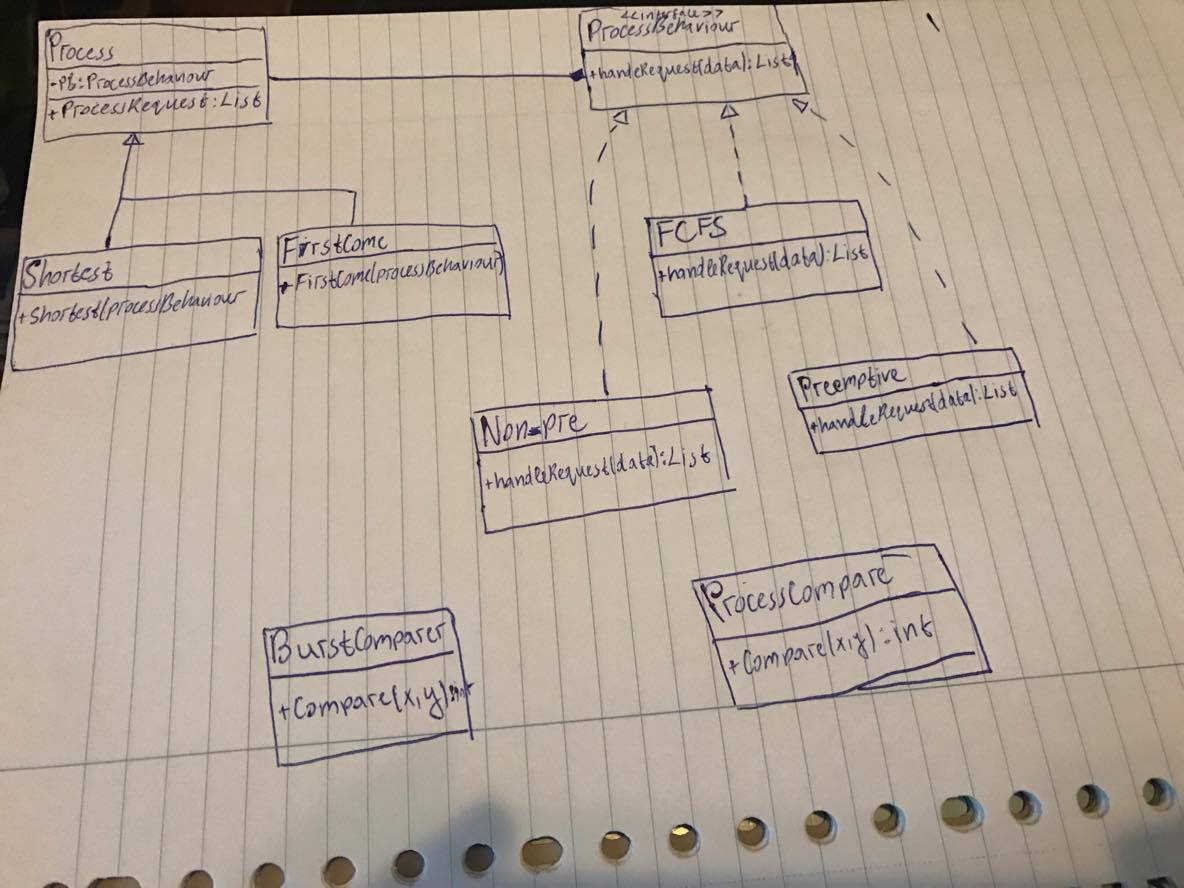 Process
-Pb:ProcessBehaviour
+ProcessRequest:List
<<interface>>
ProcessBehaviour
+handleRequest(data):List
Shortest
+Shortest(processBehaviour
FirstCome
+FirstCome(processBehaviour)
FCFS
+handleRequest(data):List
Non-pre
+handleRequest(data):List
Preemptive
+handleRequest(data):List
BurstComparer
+Compare(x,y):int
ProcessCompare
+Compare(x,y):int